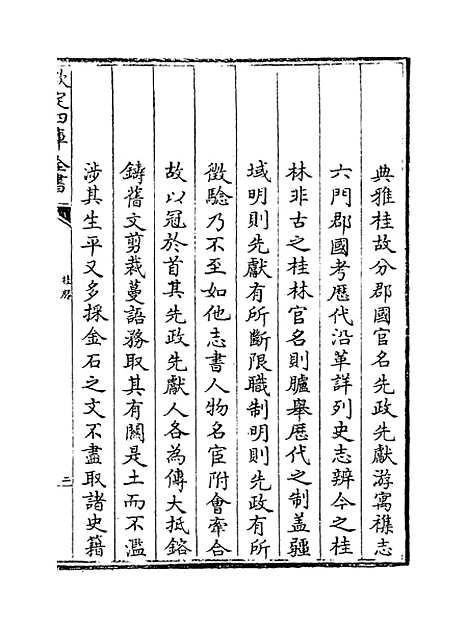 典雅桂故分郡國官名先政先獻游寓襍志
六門郡國考歴代沿革詳列史志辨今之桂
林非古之桂林官名則臚舉歴代之制蓋疆
域明則先獻有所斷限職制明則先政有所
徵驗乃不至如他志書人物名宦附會牽合
故以冠於首其先政先獻人各為傳大抵鎔
鑄舊文剪裁蔓語務取其有闗是土而不濫
涉其生平又多採金石之文不盡取諸史籍
欽定四庫全書
桂勝
二